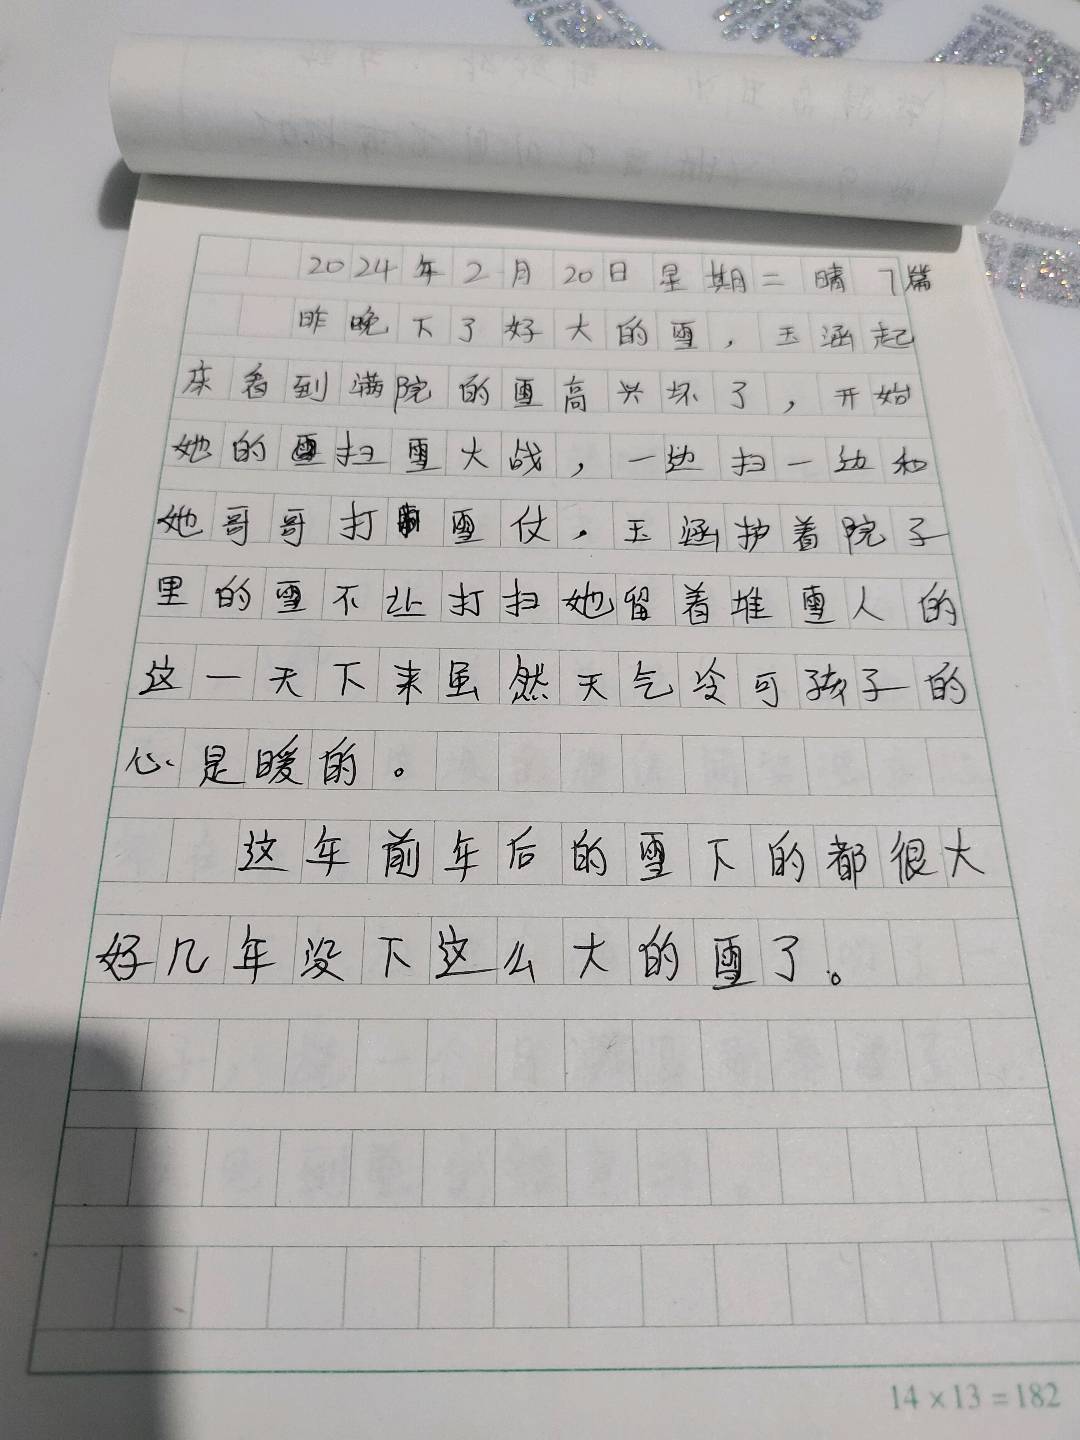 2024年2月20日星期二晴7篇
昨晚下了好大的雪，玉涵起
床看到满院的雪高兴坏了，开始
她的雪扫雪大战，一边扫一边和
她哥哥打雪仗，玉涵护着院子
里的雪不让打扫她留着堆雪人的
这一天下来虽然天气冷可孩子的
心是暖的。
这年前年后的雪下的都很大
好几年没下这么大的雪了。
14×13=182